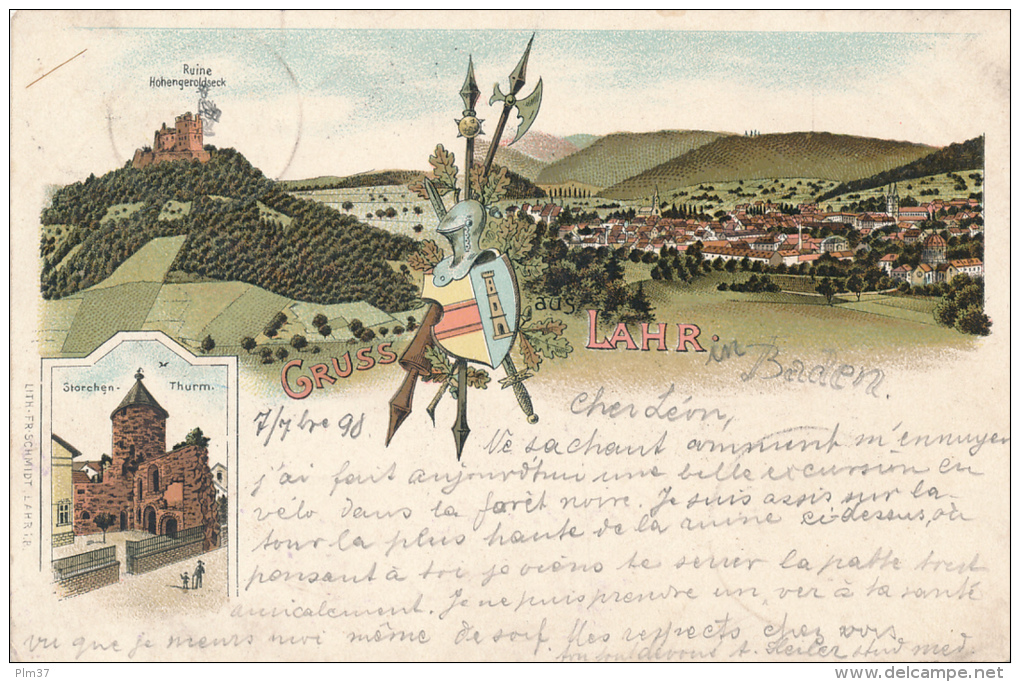 Ruine
Hohengeroldseck
GRUSS aus LAHR. in Baden
Storchen- Thurm.
LITH. FR. SCHMIDT, LAHR i. B.
7/7bre 98
Cher Léon,
Ne sachant comment m'ennuyer
j'ai fait aujourd'hui une belle excursion en
vélo dans la forêt noire. Je suis assis sur la
tour la plus haute de la ruine ci-dessus, où
pensant à toi je viens te serrer la patte tout
amicalement. Je ne puis prendre un ver à ta santé
vu que je meurs moi même de soif. Mes respects chez vous
ton dévoué A. stud med.
Plm37
delcampe.net